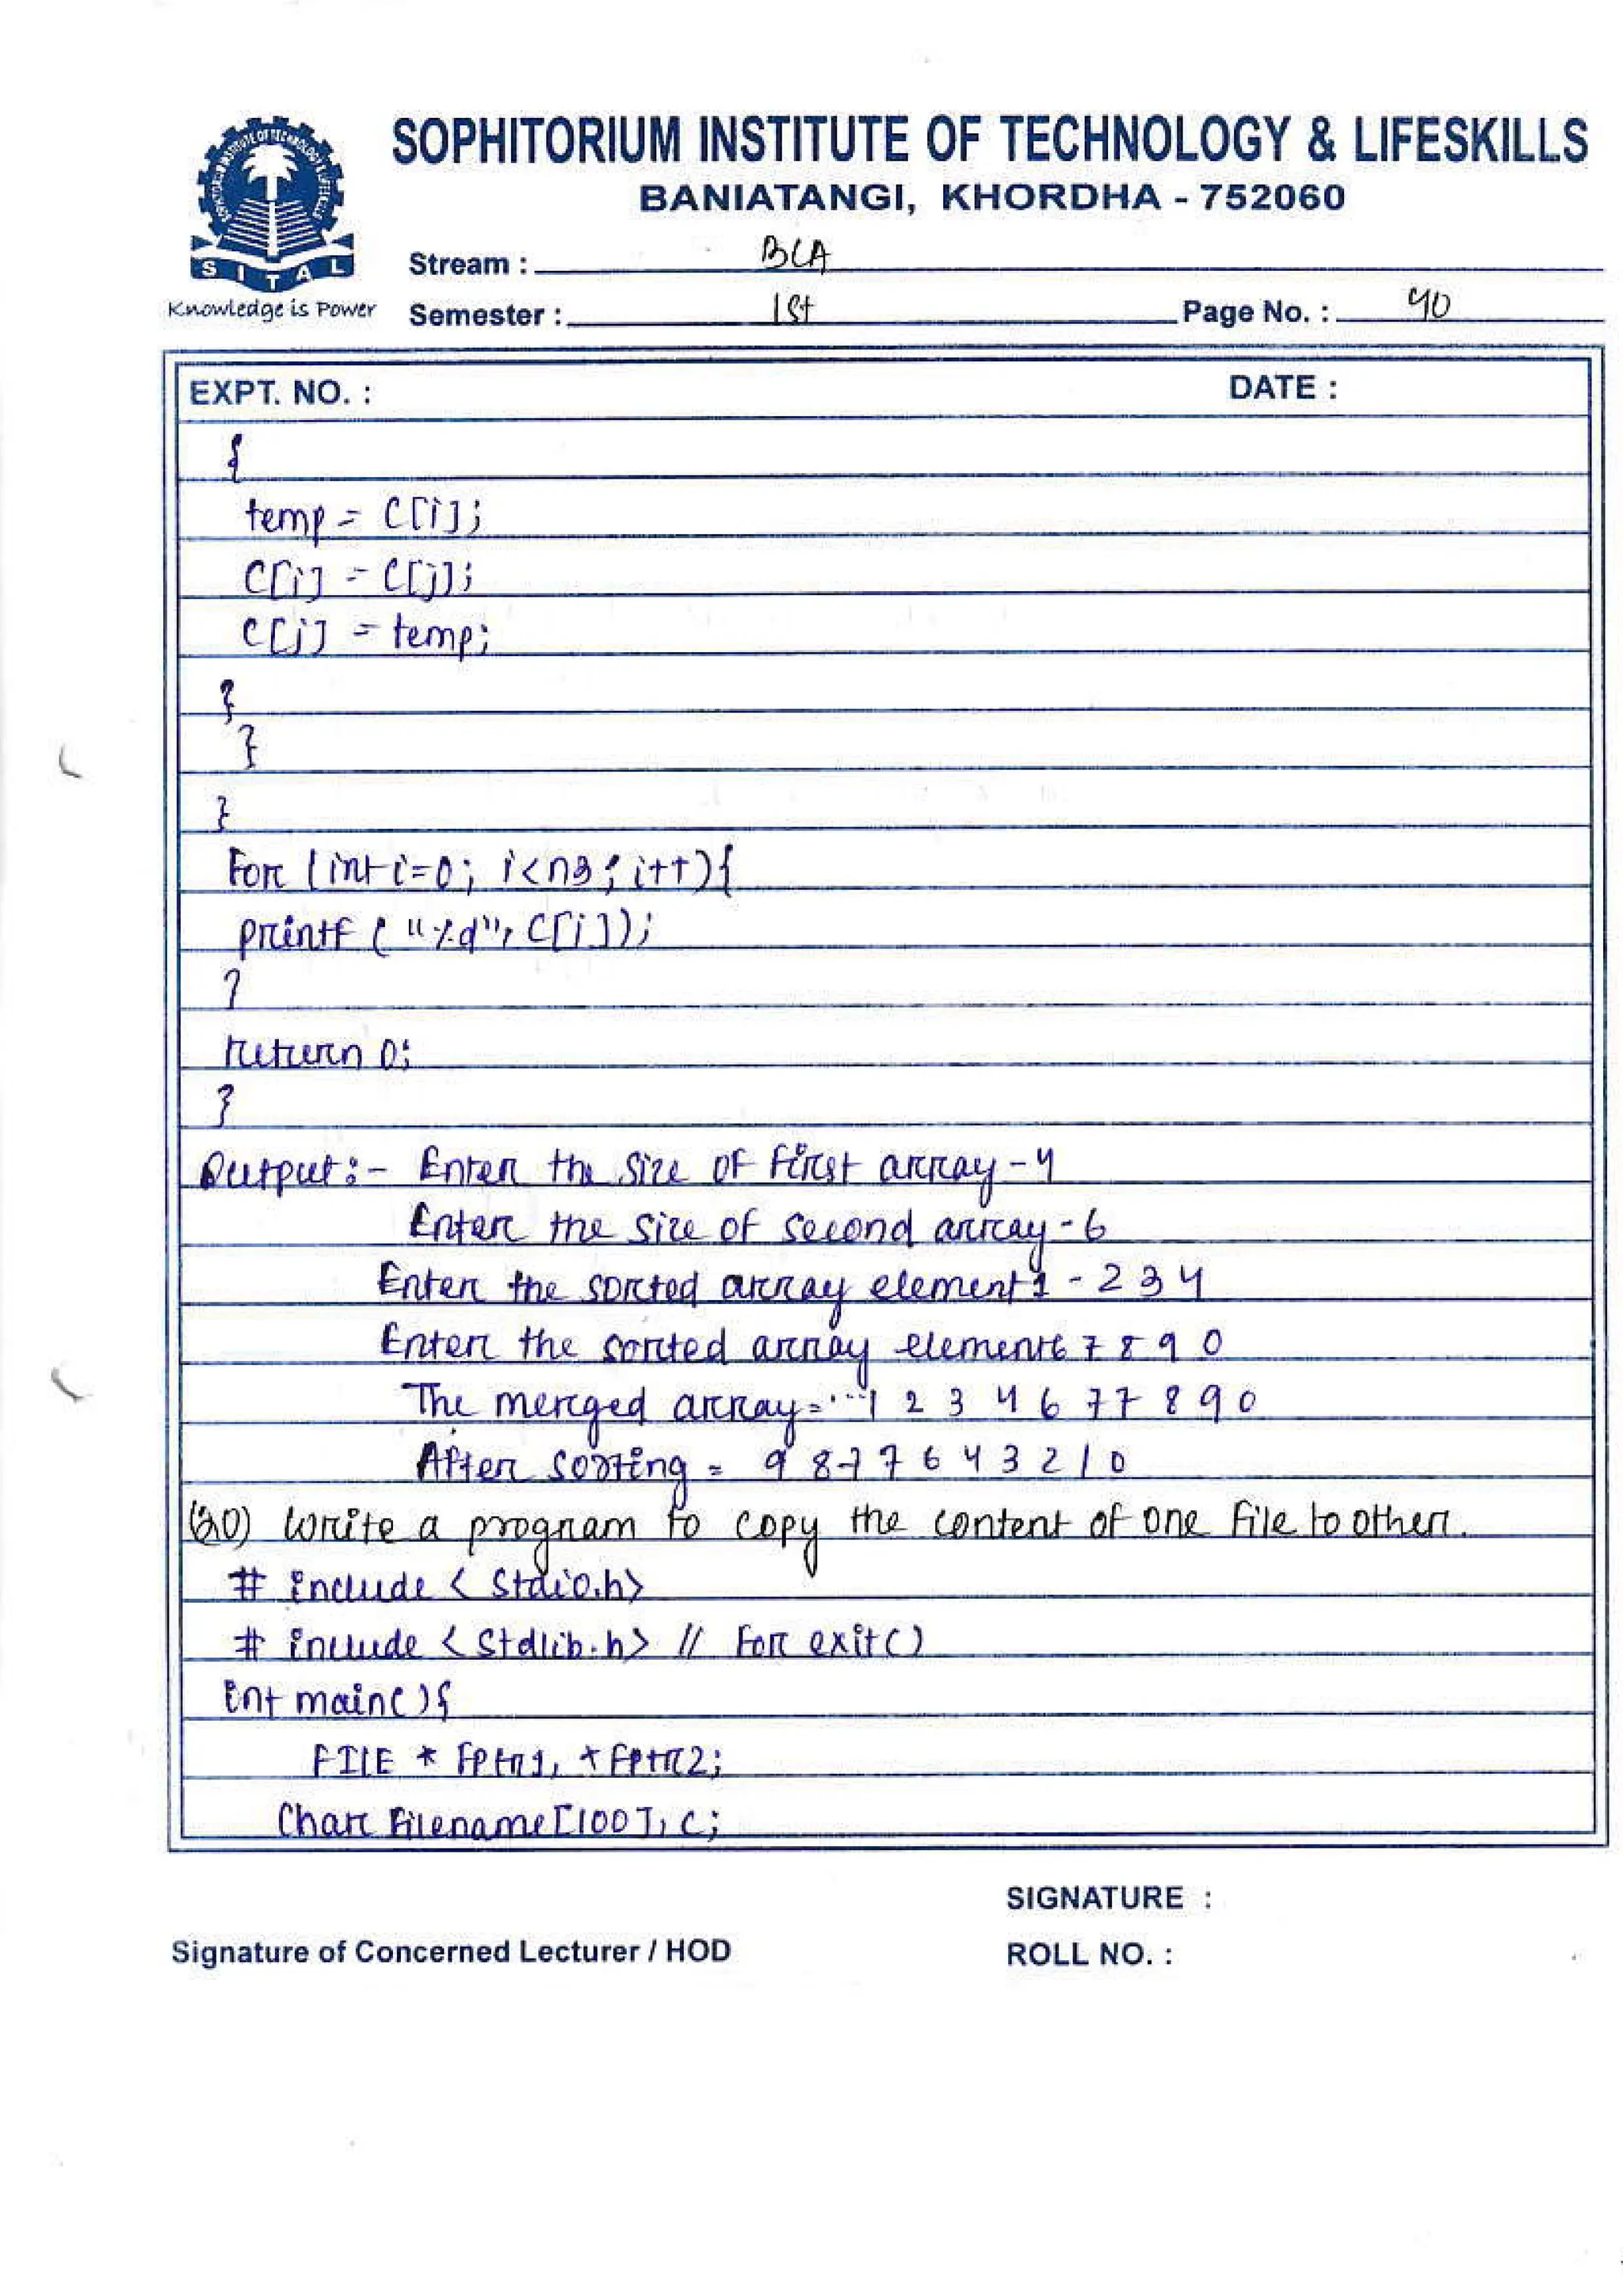 SOPHITORIUM INSTITUTE OF TECHNOLOGY & LIFESKILLS
BANIATANGI, KHORDHA - 752060
SITAL
Knowledge is Power
Stream : BCA
Semester : 1St Page No. : 40
EXPT. NO. : DATE :
{
temp = C[i];
C[i] = C[j];
C[j] = temp;
}
}
}
For (int i=0; i<n3; i++){
printf ("%d", C[i]);
}
return 0;
}
Output:- Enter the size of First array - 4
Enter the size of second array - 6
Enter the sorted array element 1 - 2 3 4
Enter the sorted array element 6 7 8 9 0
The merged array = 1 2 3 4 6 7 7 8 9 0
After sorting = 9 8 7 7 6 4 3 2 1 0
(20) Write a program to copy the content of one File to other.
# include < Stdio.h>
# include < Stdlib.h> // For exit()
int main(){
FILE * Fptr1, * Fptr2;
Char Filename[100], c;
SIGNATURE :
Signature of Concerned Lecturer / HOD
ROLL NO. :